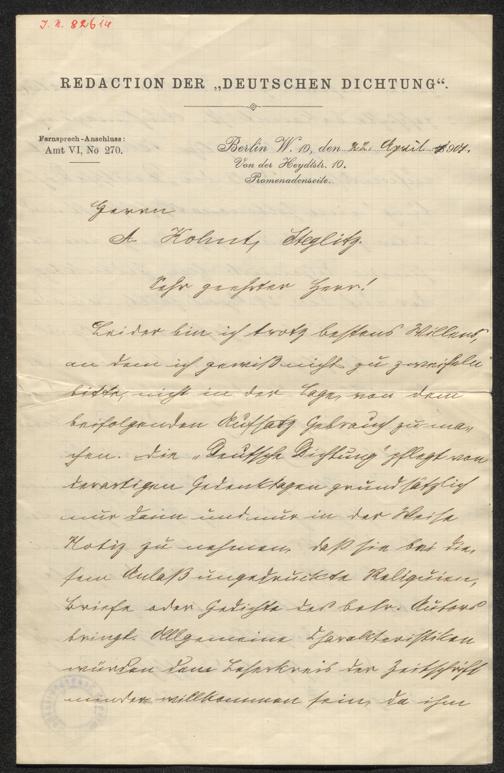 J. N. 82614
REDACTION DER „DEUTSCHEN DICHTUNG“.
Fernsprech-Anschluss:
Amt VI, No 270.
Berlin W. 10, den 22. April 1901.
Von der Heydtstr. 10.
Promenadenseite.
Herrn
A. Kohut, Steglitz.
Sehr geehrter Herr!
Leider bin ich trotz bestens Willens,
an dem ich gewiß nicht zu zweifeln
bitte, nicht in der Lage, von dem
beifolgenden Aufsatz Gebrauch zu ma-
chen. Die „Deutsche Dichtung“ pflegt von
derartigen Gedenktagen grundsätzlich
nur dann und nur in der Weise
Notiz zu nehmen, daß sie bei die-
sem Anlaß ungedruckte Reliquien,
Briefe oder Gedichte des betr. Autors
bringt. Allgemeine Charakteristiken
würden dem Leserkreis der Zeitschrift
minder willkommen sein, da ihm